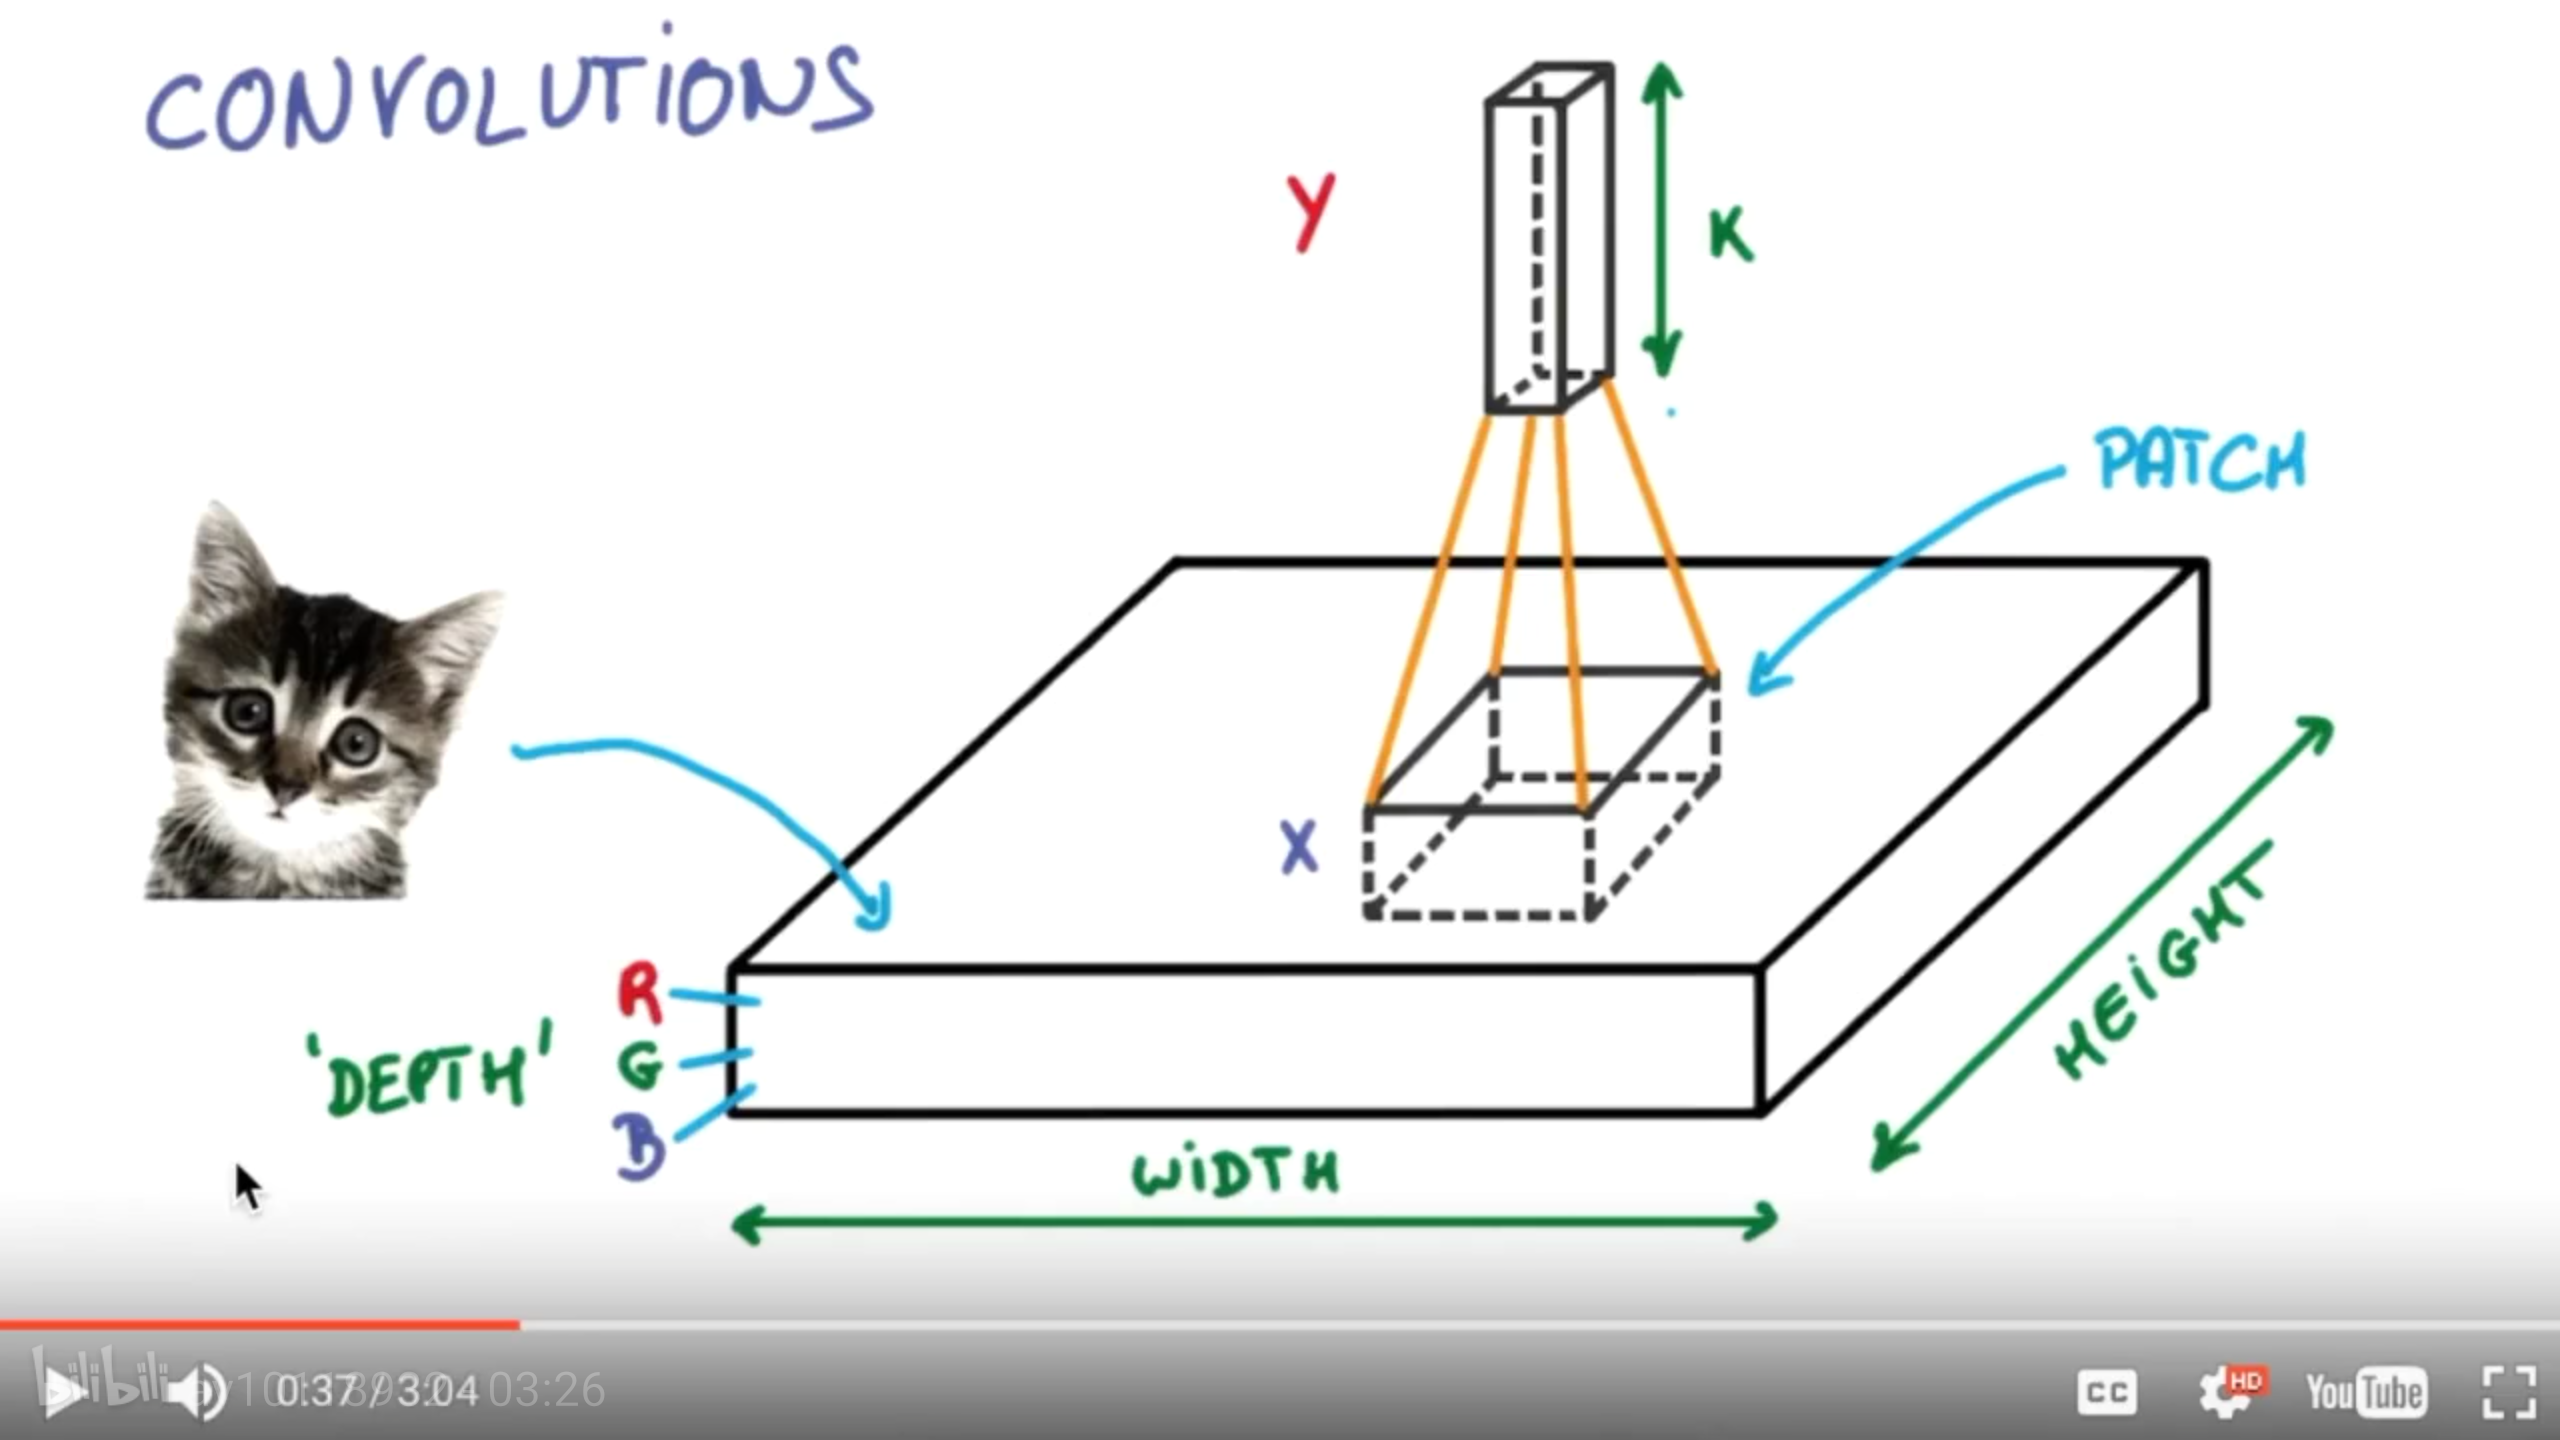 CONVOLUTIONS
Y
K
PATCH
X
R
'DEPTH'
G
B
HEIGHT
WIDTH
bilibili
0:37 / 3:04
03:26
CC
HD
YouTube